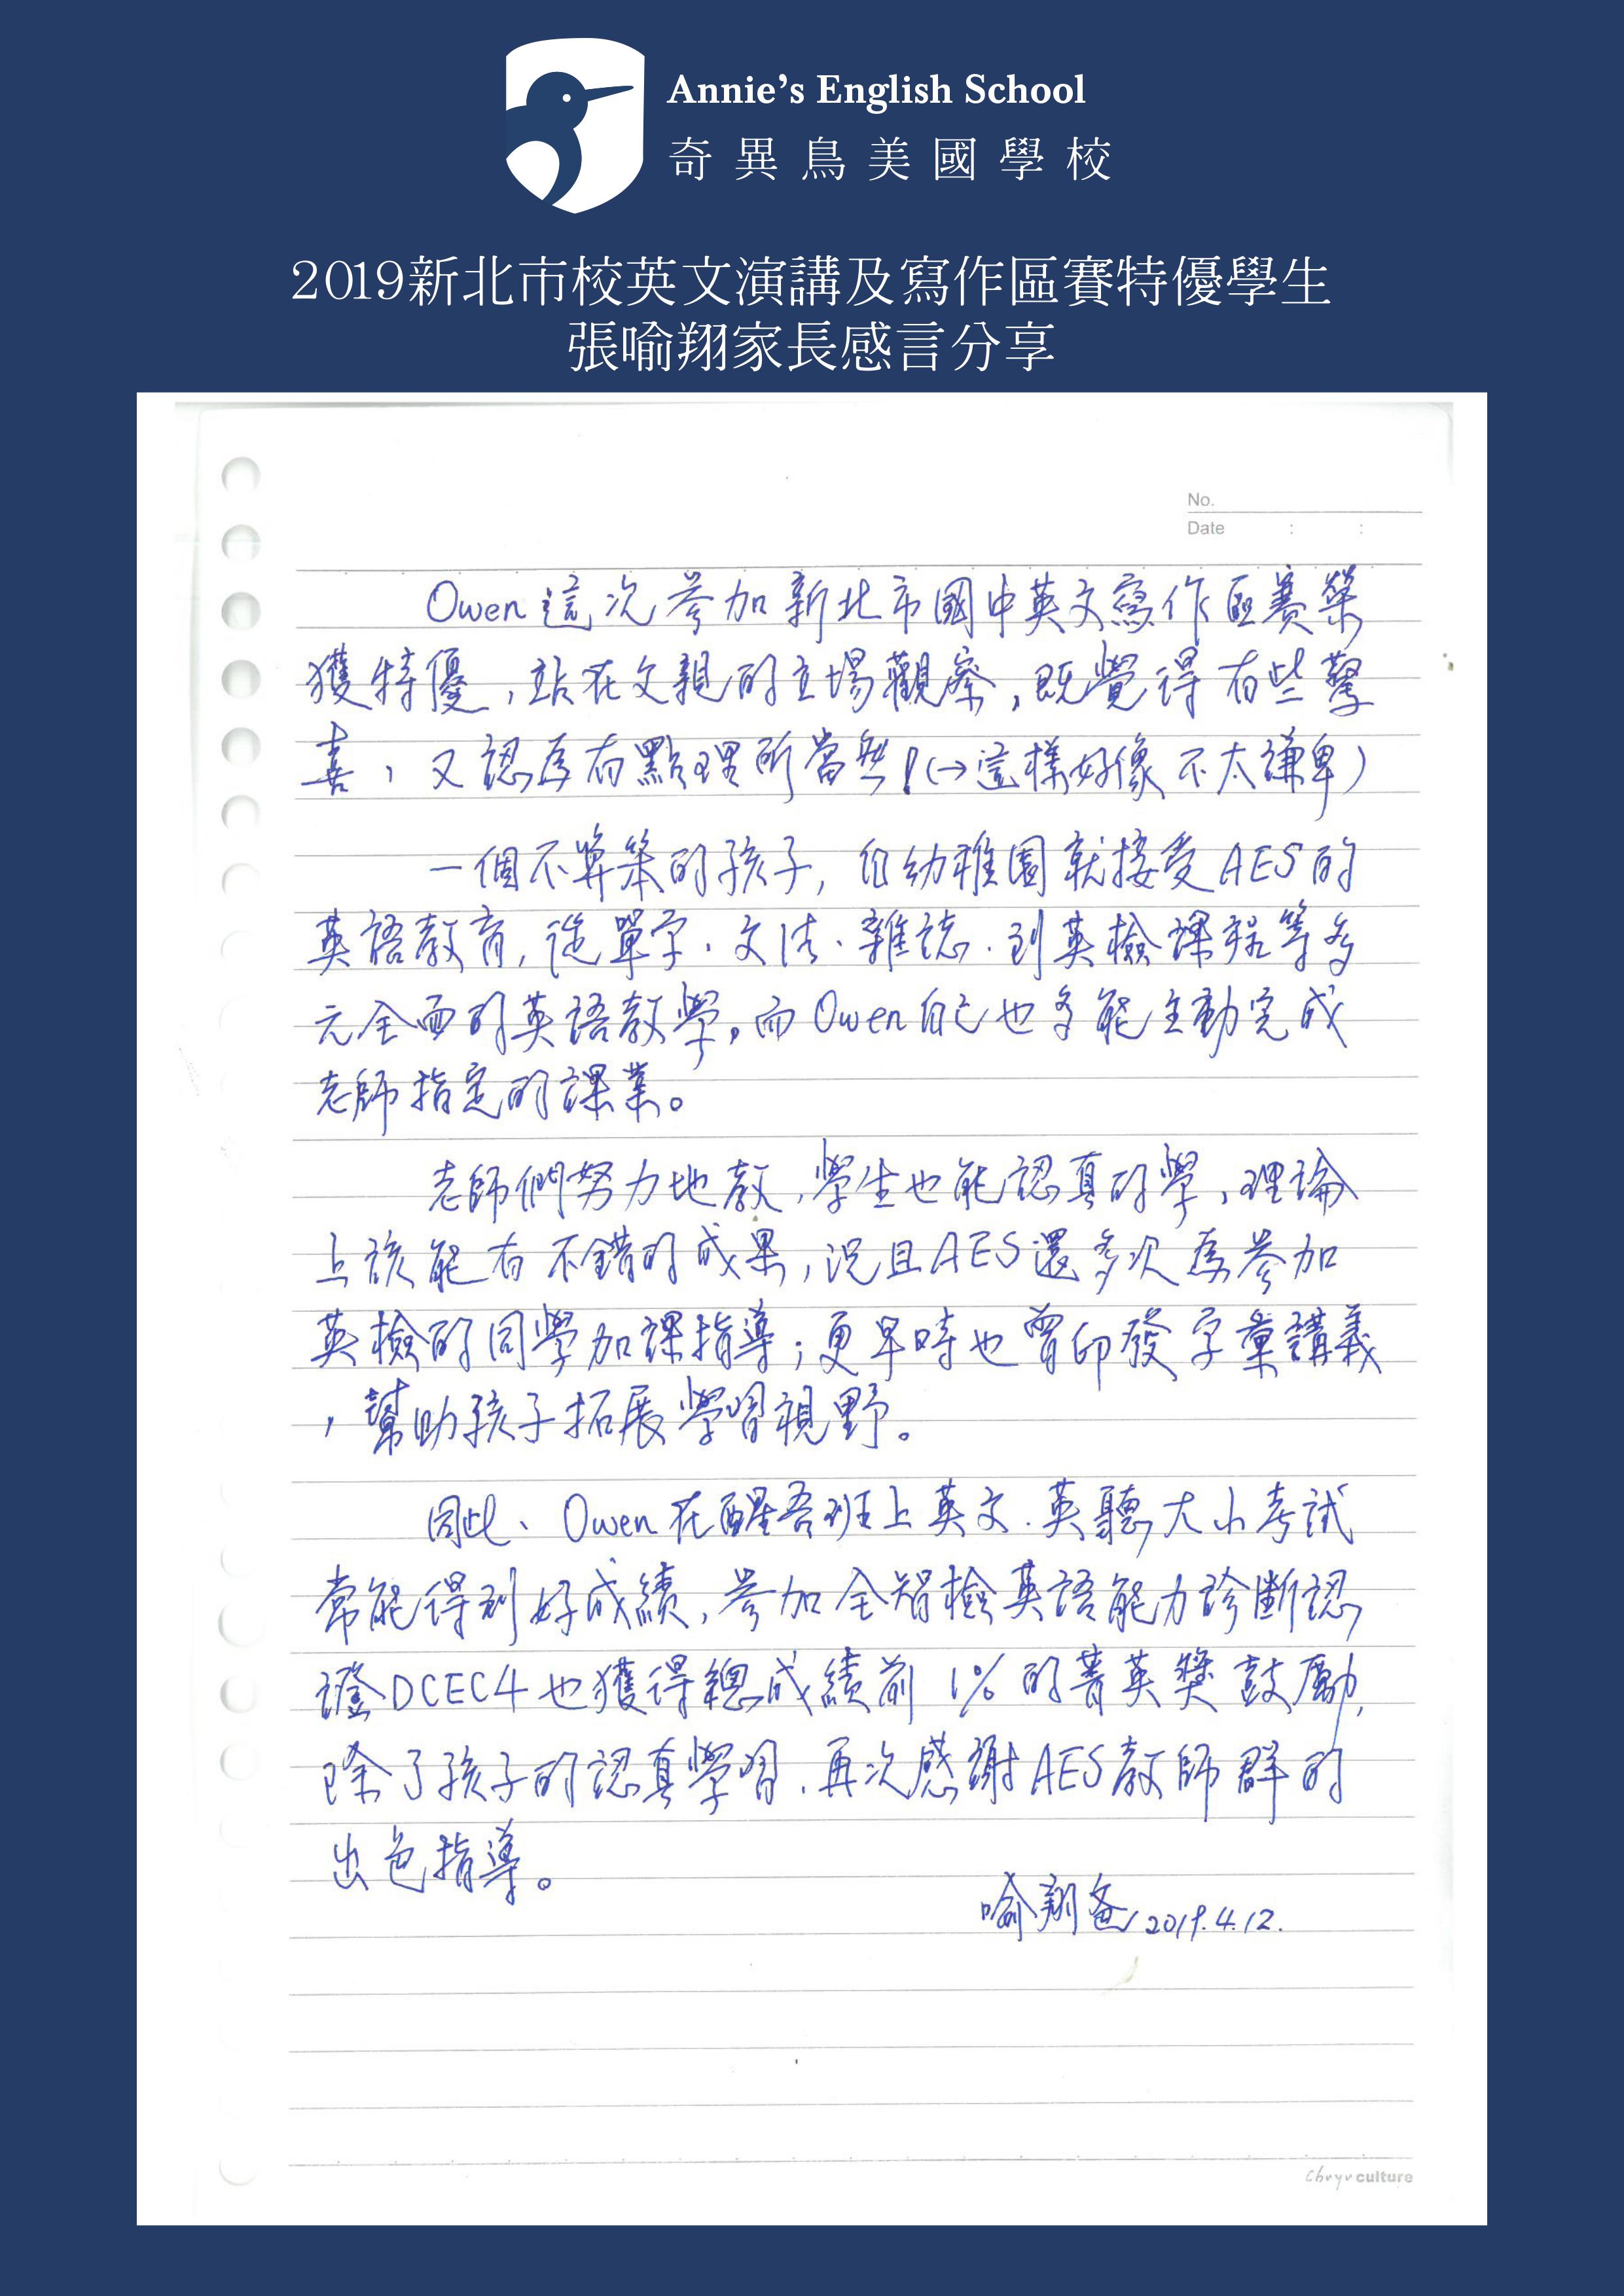 Annie's English School
奇異鳥美國學校
2019新北市校英文演講及寫作區賽特優學生
張喻翔家長感言分享
No.
Date : :
Owen這次參加新北市國中英文寫作區賽榮
獲特優,站在父親的立場觀察,既覺得有些驚
喜,又認為有點理所當然!(→這樣好像不太謙卑)
一個不算笨的孩子,自幼稚園就接受AES的
英語教育,從單字、文法、雜誌、到英檢課程等多
元全面的英語教學。而Owen自己也多能主動完成
老師指定的課業。
老師們努力地教,學生也能認真的學,理論
上該能有不錯的成果,況且AES還多次為參加
英檢的同學加課指導;更早時也曾印發字彙講義
,幫助孩子拓展學習視野。
因此、Owen在醒吾班上英文、英聽大小考試
常能得到好成績,參加全智檢英語能力診斷認
證DCEC4也獲得總成績前1%的菁英獎鼓勵,
除了孩子的認真學習、再次感謝AES教師群的
出色指導。
喻翔爸 2019.4.12.
chryv culture